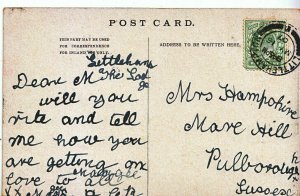 POST CARD.
THIS MAY BE USED
FOR CORRESPONDENCE
FOR INLAND USE ONLY
ADDRESS TO BE WRITTEN HERE.
Littleham
Dear M The Lod
will you
rite and tell
me how you
are getting on
love to all
Mrs Hampshire
Mare Hill
Pulborough
Sussex